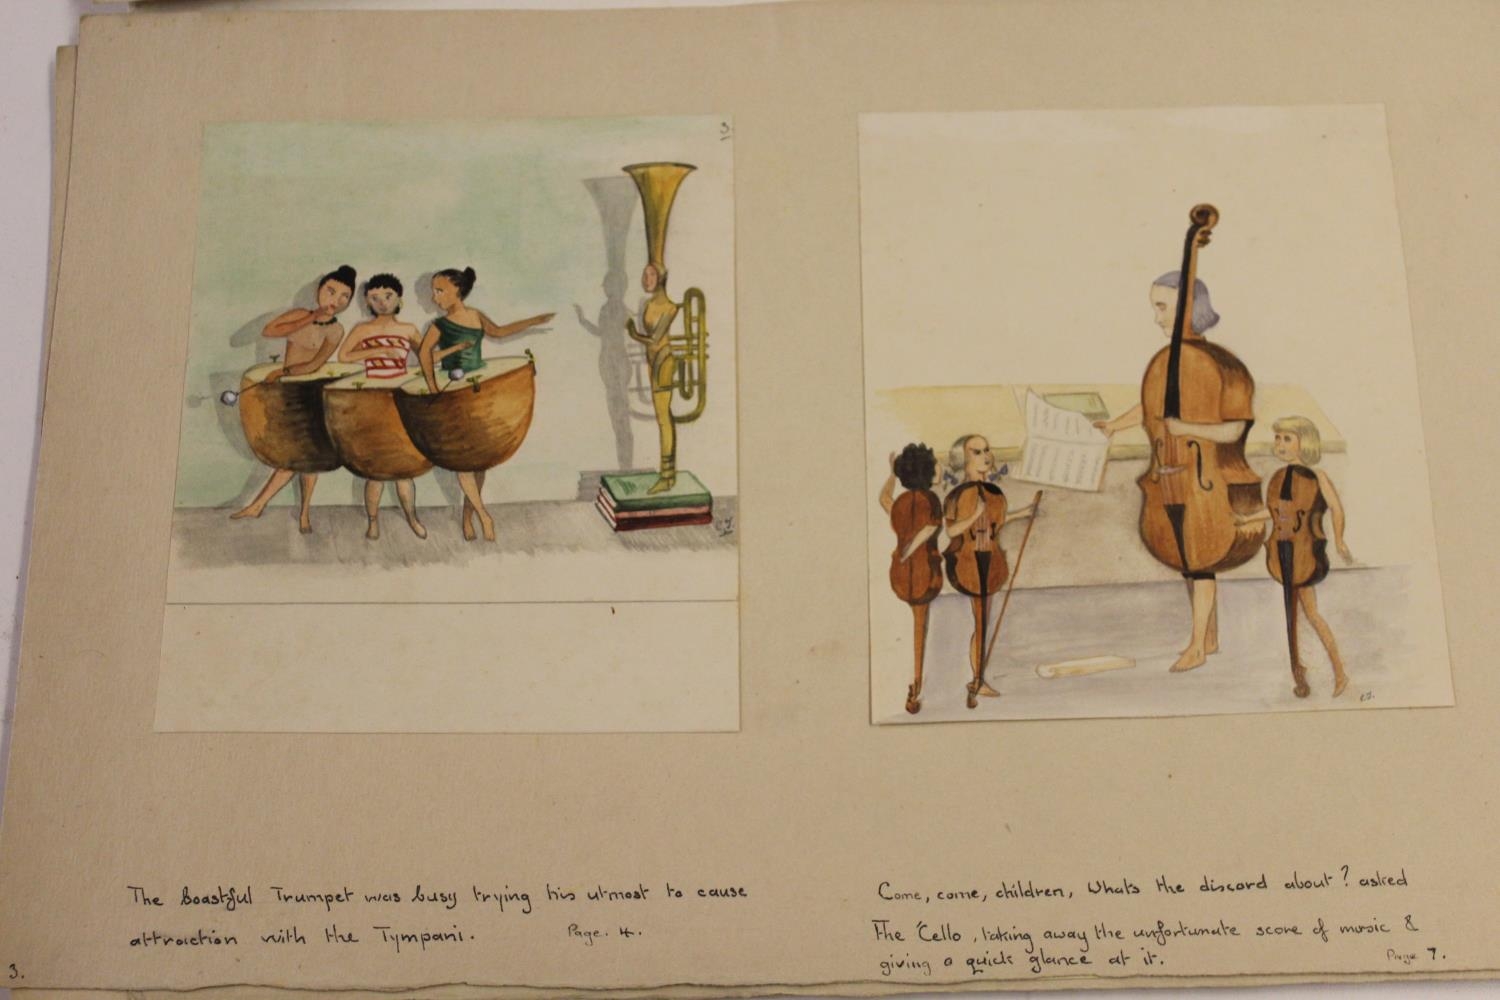 3.
C.J.
C.J.
The boastful Trumpet was busy trying his utmost to cause
attraction with the Tympani. Page. 4.
Come, come, children, Whats the discord about? asked
The 'Cello, taking away the unfortunate score of music &
giving a quick glance at it. Page 7.
3.